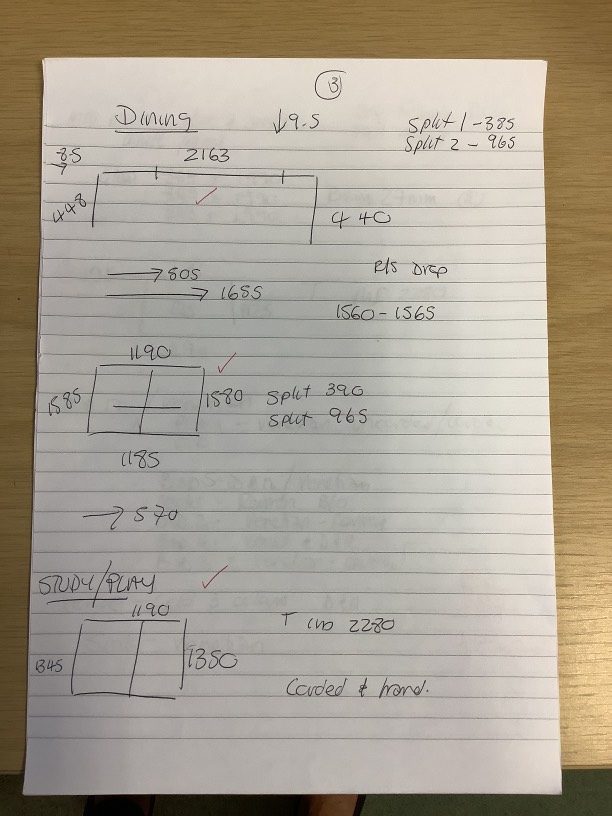 3
Dining ↓9.5 Split 1 - 385
Split 2 - 965
85 2163
→
448 440
→ 805 R/S Drop
→ 1655 1560 - 1565
1190
1585 1580 Split 390
Split 965
1185
→ 570
STUDY/PLAY
1190 2280
1345 1350
Corded &